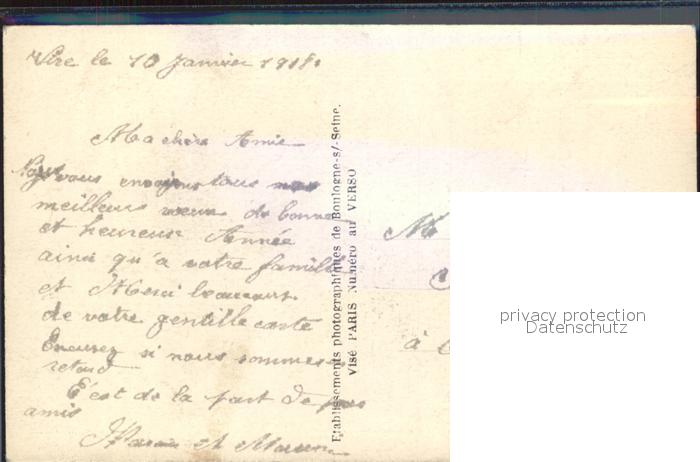 Vire le 10 Janvier 1918.
Ma chère Amie
Nous vous envoyons tous nos
meilleurs vœux de bonne
et heureuse Année
ainsi qu'à votre famille
et Merci beaucoup
de votre gentille carte
Excusez si nous sommes
retard
C'est de la part de
amis
et
Etablissements photographiques de Boulogne-s/-Seine.
Visé PARIS Numéro au VERSO
M
à
privacy protection
Datenschutz